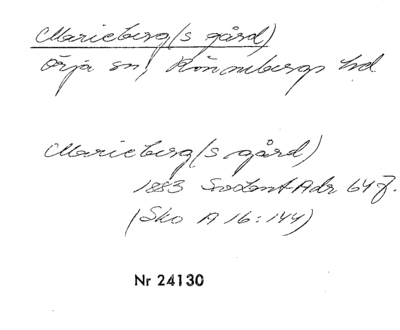 Marieberg(s gård)
Örja sn, Rönnebergs hd
Marieberg(s gård)
1883 SvoLantAdr 64 f.
(Sko A 16:144)
Nr 24130